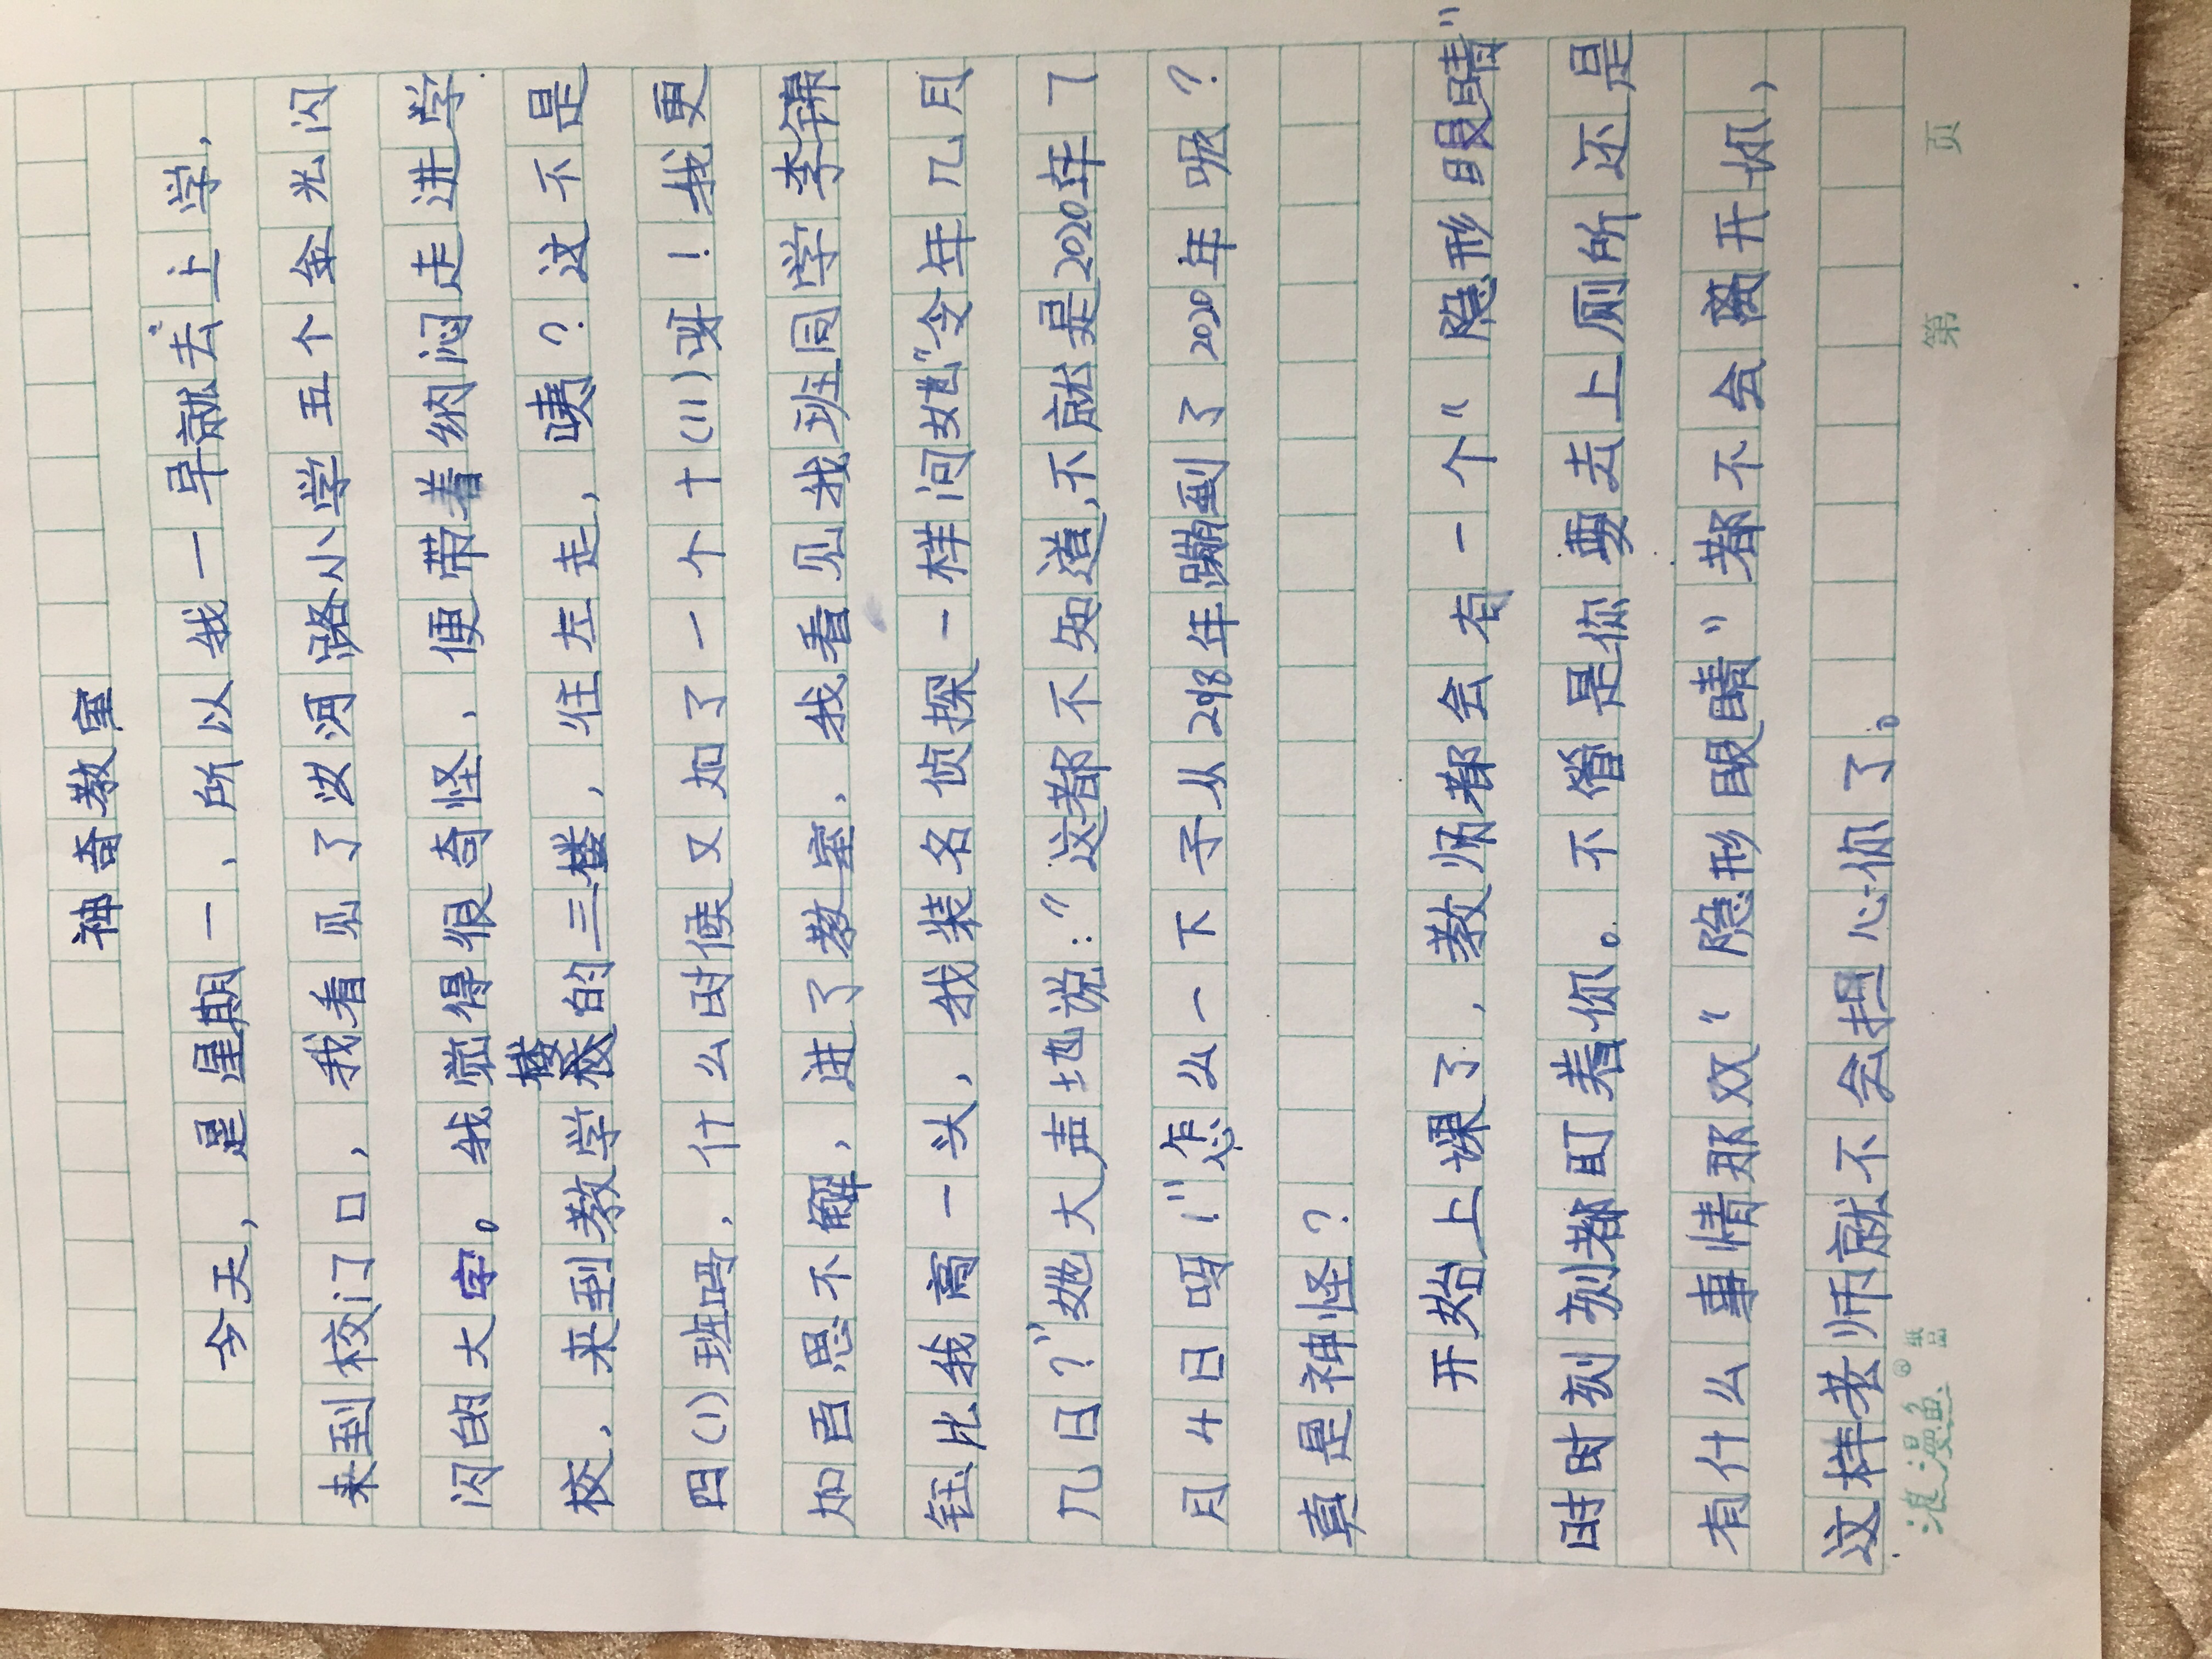 神奇教室
今天，是星期一，所以我一早就去上学，
来到校门口，我看见了汝河路小学五个金光闪
闪的大字。我觉得很奇怪，便带着纳闷走进学
校，来到教学楼的三楼，往左走，咦？这不是
四(1)班吗，什么时候又加了一个十(11)呀！我更
加百思不解，进了教室，我看见我班同学李锦
钰比我高一头，我装名侦探一样问她“今年几月
几日？”她大声地说：“这都不知道，不就是2020年7
月4日呀！”怎么一下子从2048年蹦到了2020年呢？
真是神怪？
开始上课了，教师都会有一个“隐形眼睛”
时时刻刻都盯着你。不管是你要去上厕所还是
有什么事情那双“隐形眼睛”都不会离开你，
这样老师就不会担心你了。
浪漫鱼®纸品
第 页